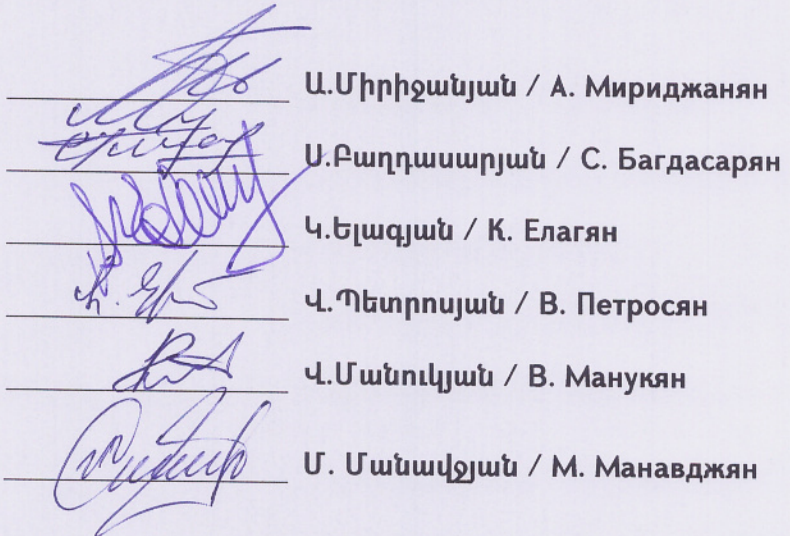 Ա.Միրիջանյան / А. Мириджанян
Ս.Բաղդասարյան / С. Багдасарян
Կ.Ելագյան / К. Елагян
Վ.Պետրոսյան / В. Петросян
Վ.Մանուկյան / В. Манукян
Մ. Մանավջյան / М. Манавджян